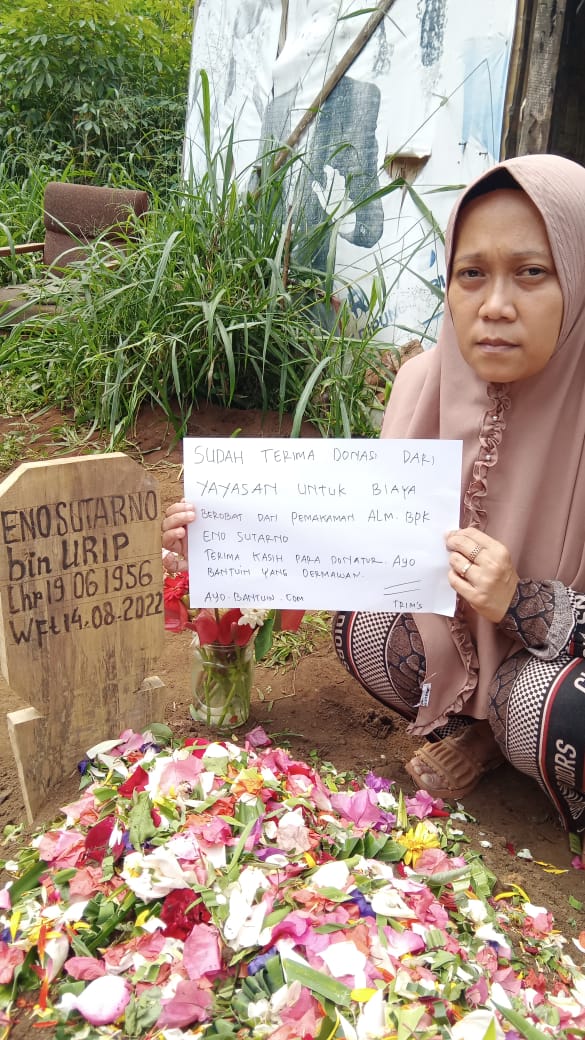 ENO SUTARNO
bin URIP
Lhr 19 06 1956
WFt 14-08-2022
SUDAH TERIMA DONASI DARI
YAYASAN UNTUK BIAYA
BEROBAT DAN PEMAKAMAN ALM. BPK
ENO SUTARNO
TERIMA KASIH PARA DONATUR. AYO
BANTUIN YANG DERMAWAN.
AYO-BANTUIN.COM
TRIM'S